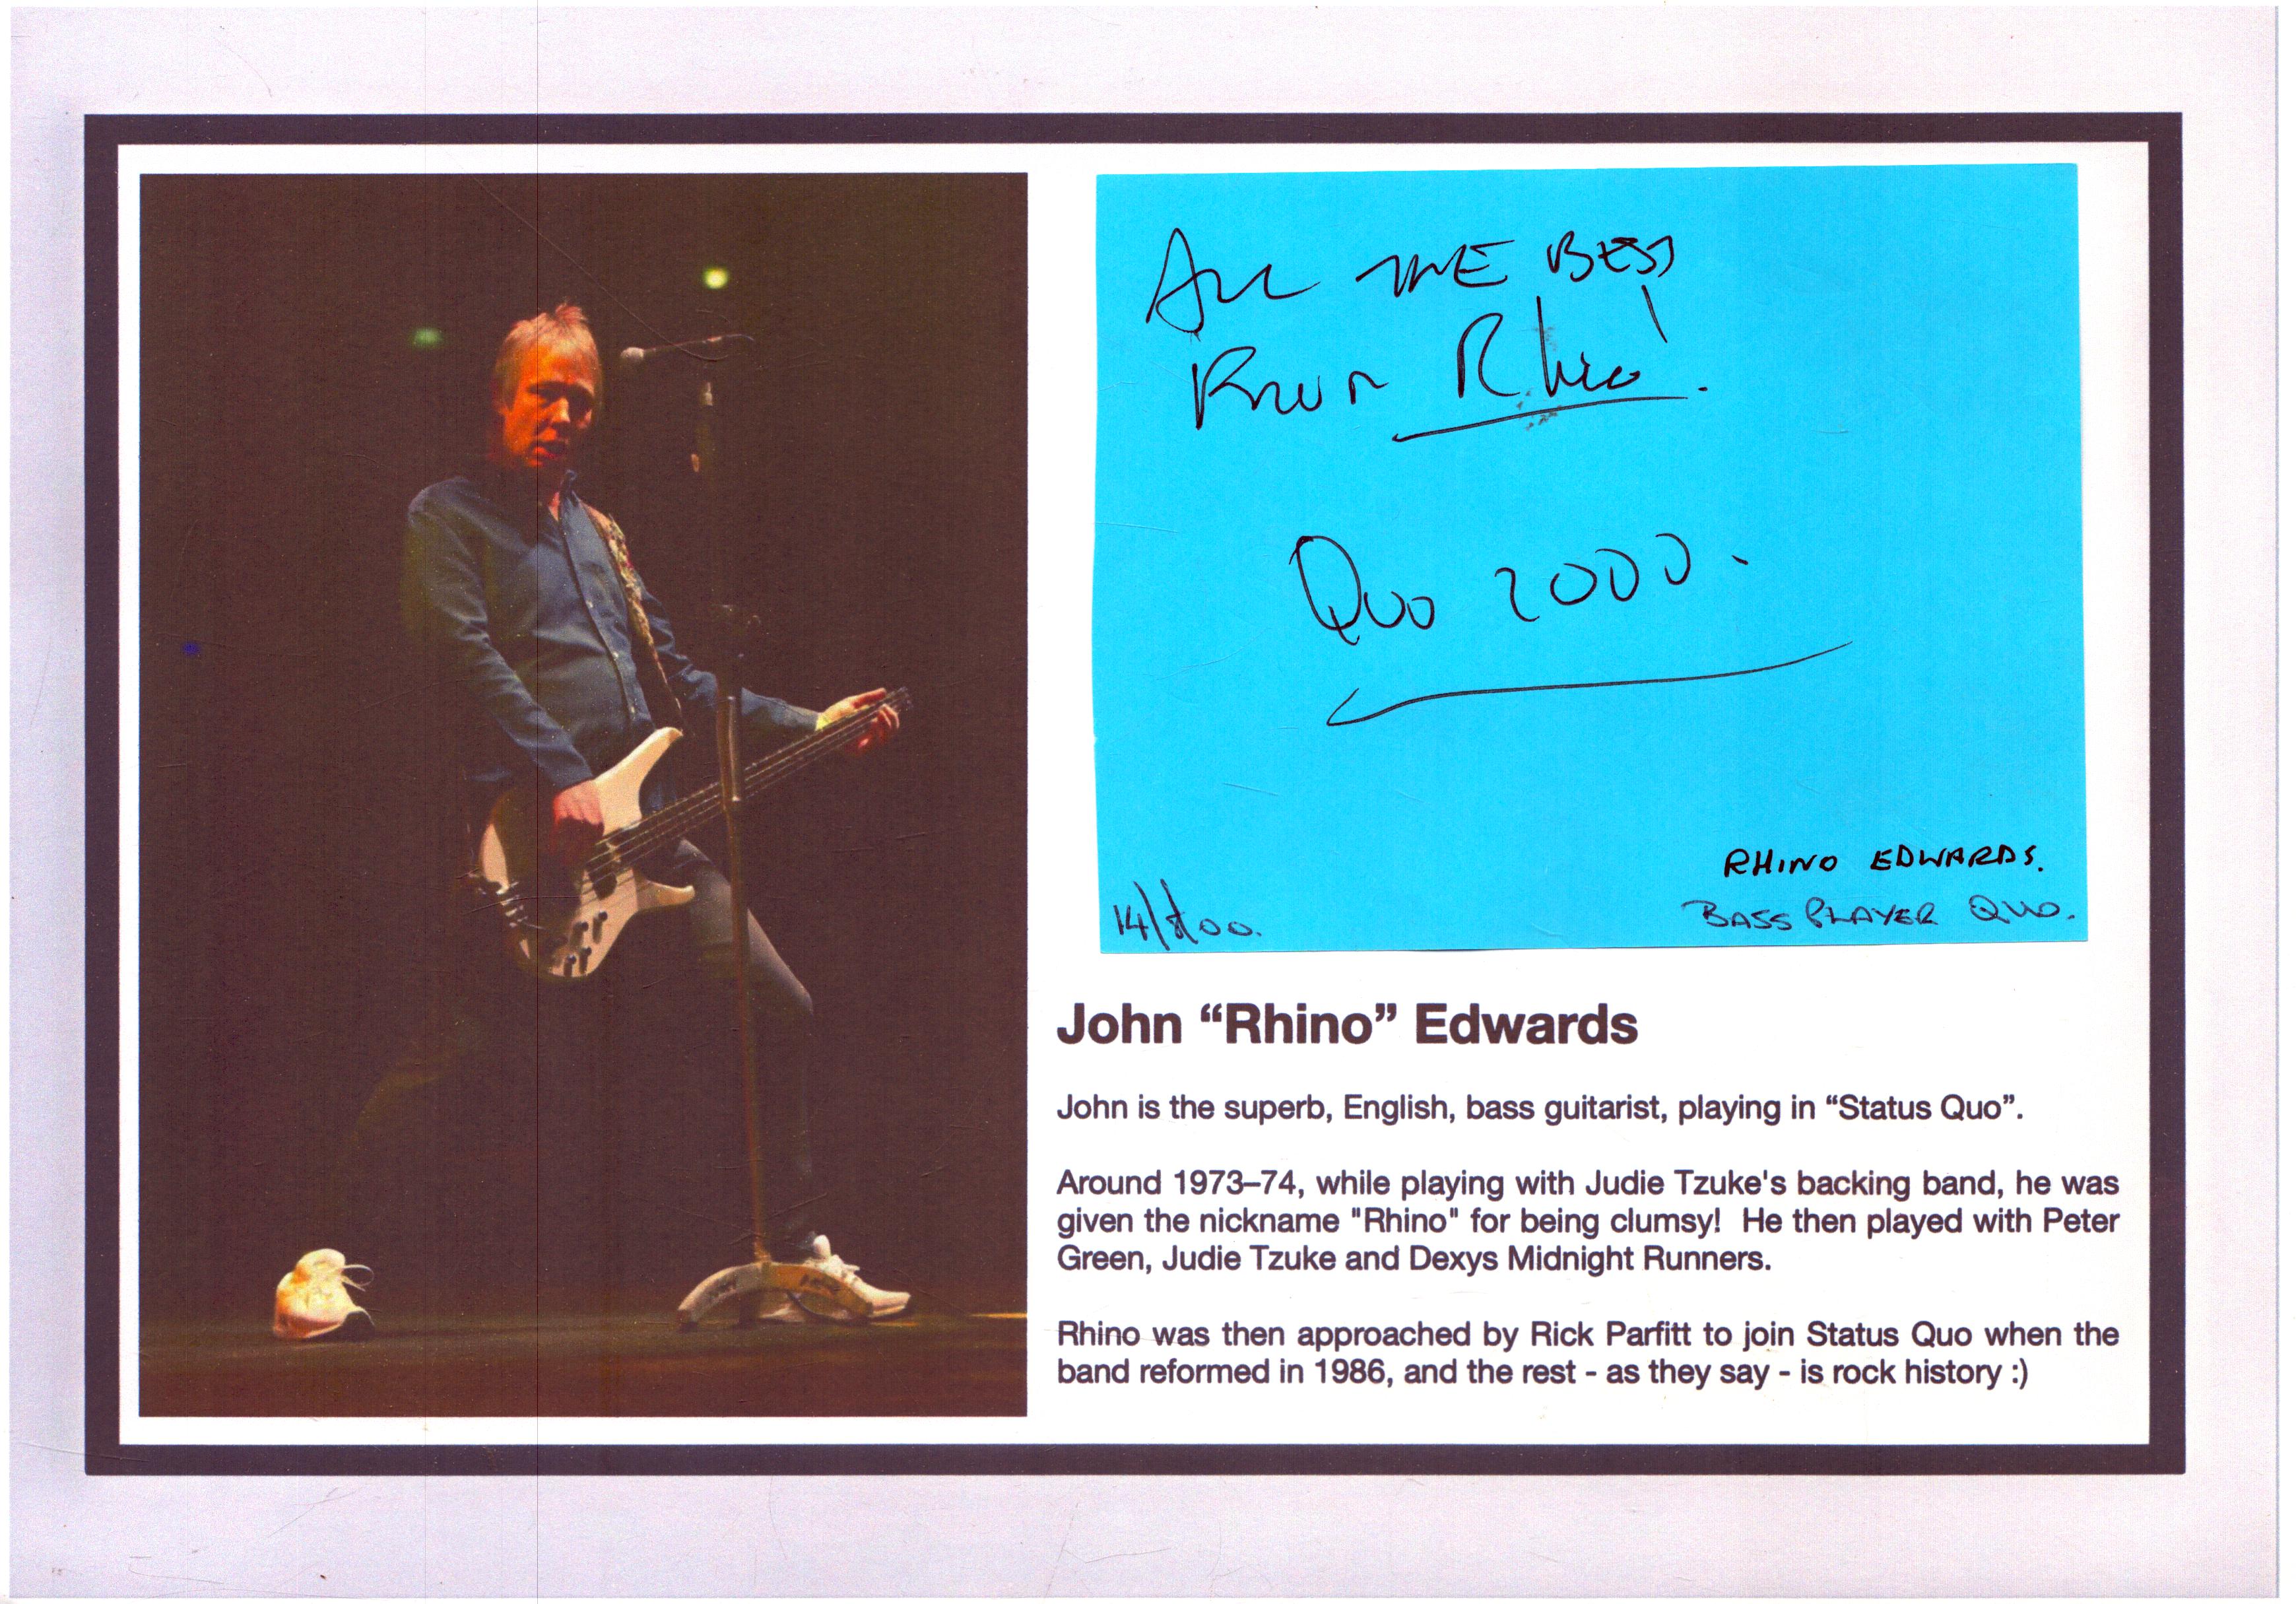 ALL THE BEST
FROM Rhino!
Quo 2000.
RHINO EDWARDS.
BASS PLAYER QUO.
John “Rhino” Edwards
John is the superb, English, bass guitarist, playing in “Status Quo”.
Around 1973–74, while playing with Judie Tzuke's backing band, he was
given the nickname "Rhino" for being clumsy!  He then played with Peter
Green, Judie Tzuke and Dexys Midnight Runners.
Rhino was then approached by Rick Parfitt to join Status Quo when the
band reformed in 1986, and the rest - as they say - is rock history :)